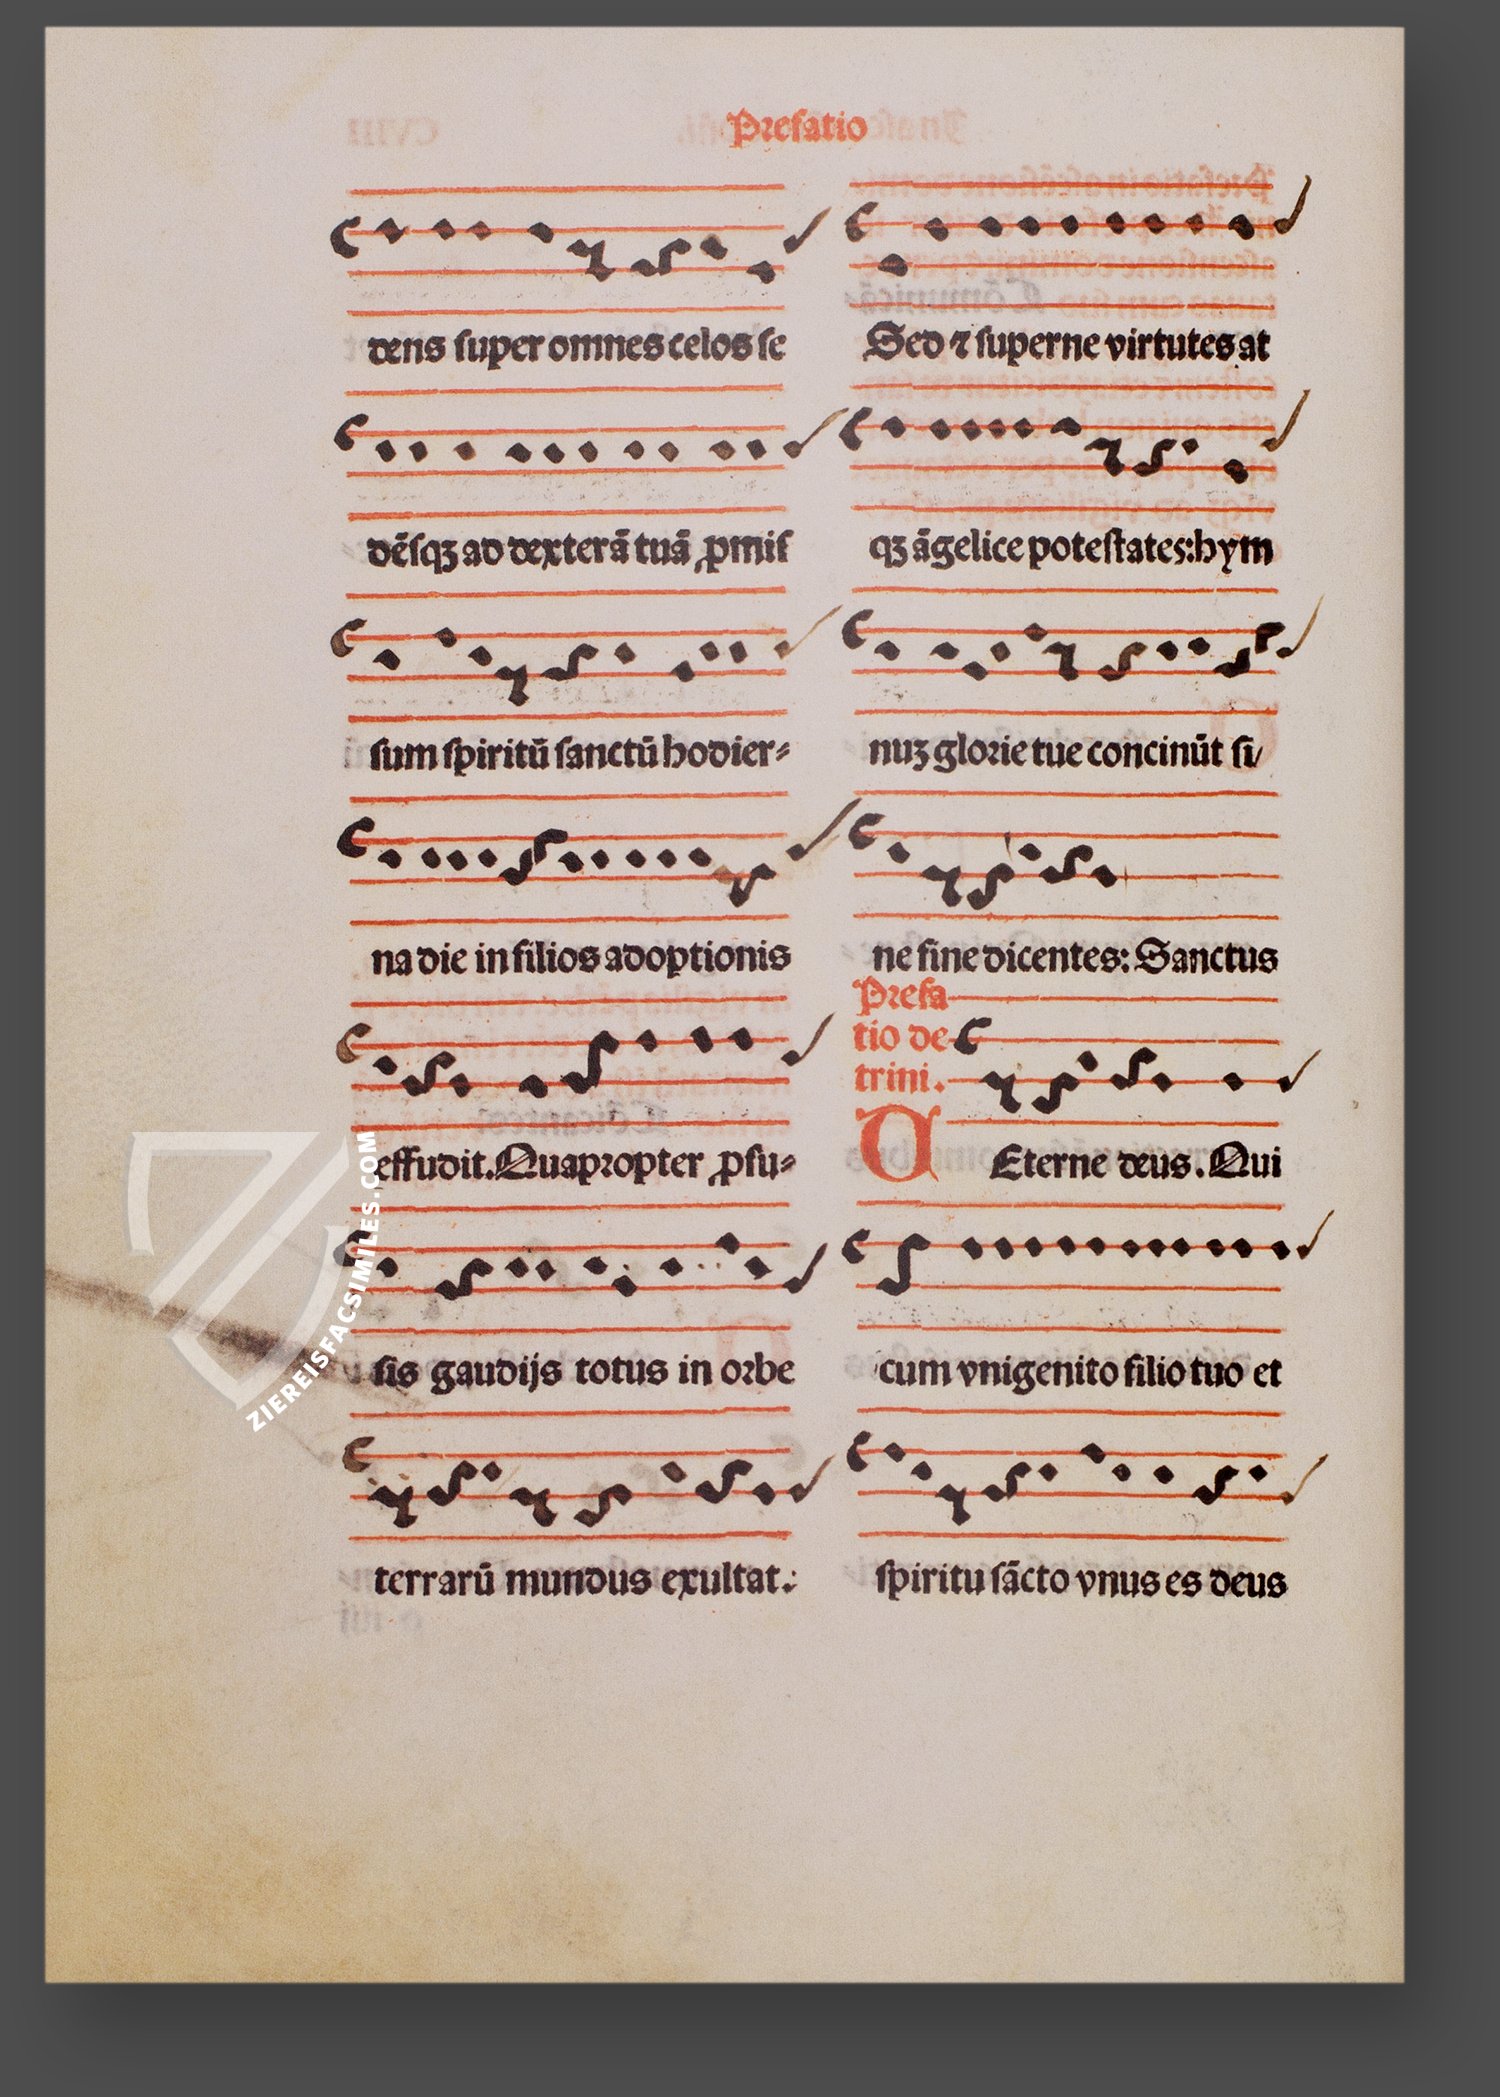 Prefatio
dens super omnes celos se
dēsqꝫ ad dexterā tuā ꝓmis
sum spiritū sanctū hodier⸗
na die in filios adoptionis
effudit. Quapropter ꝓfu⸗
sis gaudijs totus in orbe
terrarū mundus exultat.:
Sed ⁊ superne virtutes at
qꝫ āgelice potestates: hym
nuꝫ glorie tue concinūt si/
ne fine dicentes: Sanctus
Prefa
tio de
trini.
U Eterne deus. Qui
cum vnigenito filio tuo et
spiritu sācto vnus es deus
ZIEREISFACSIMILES.COM